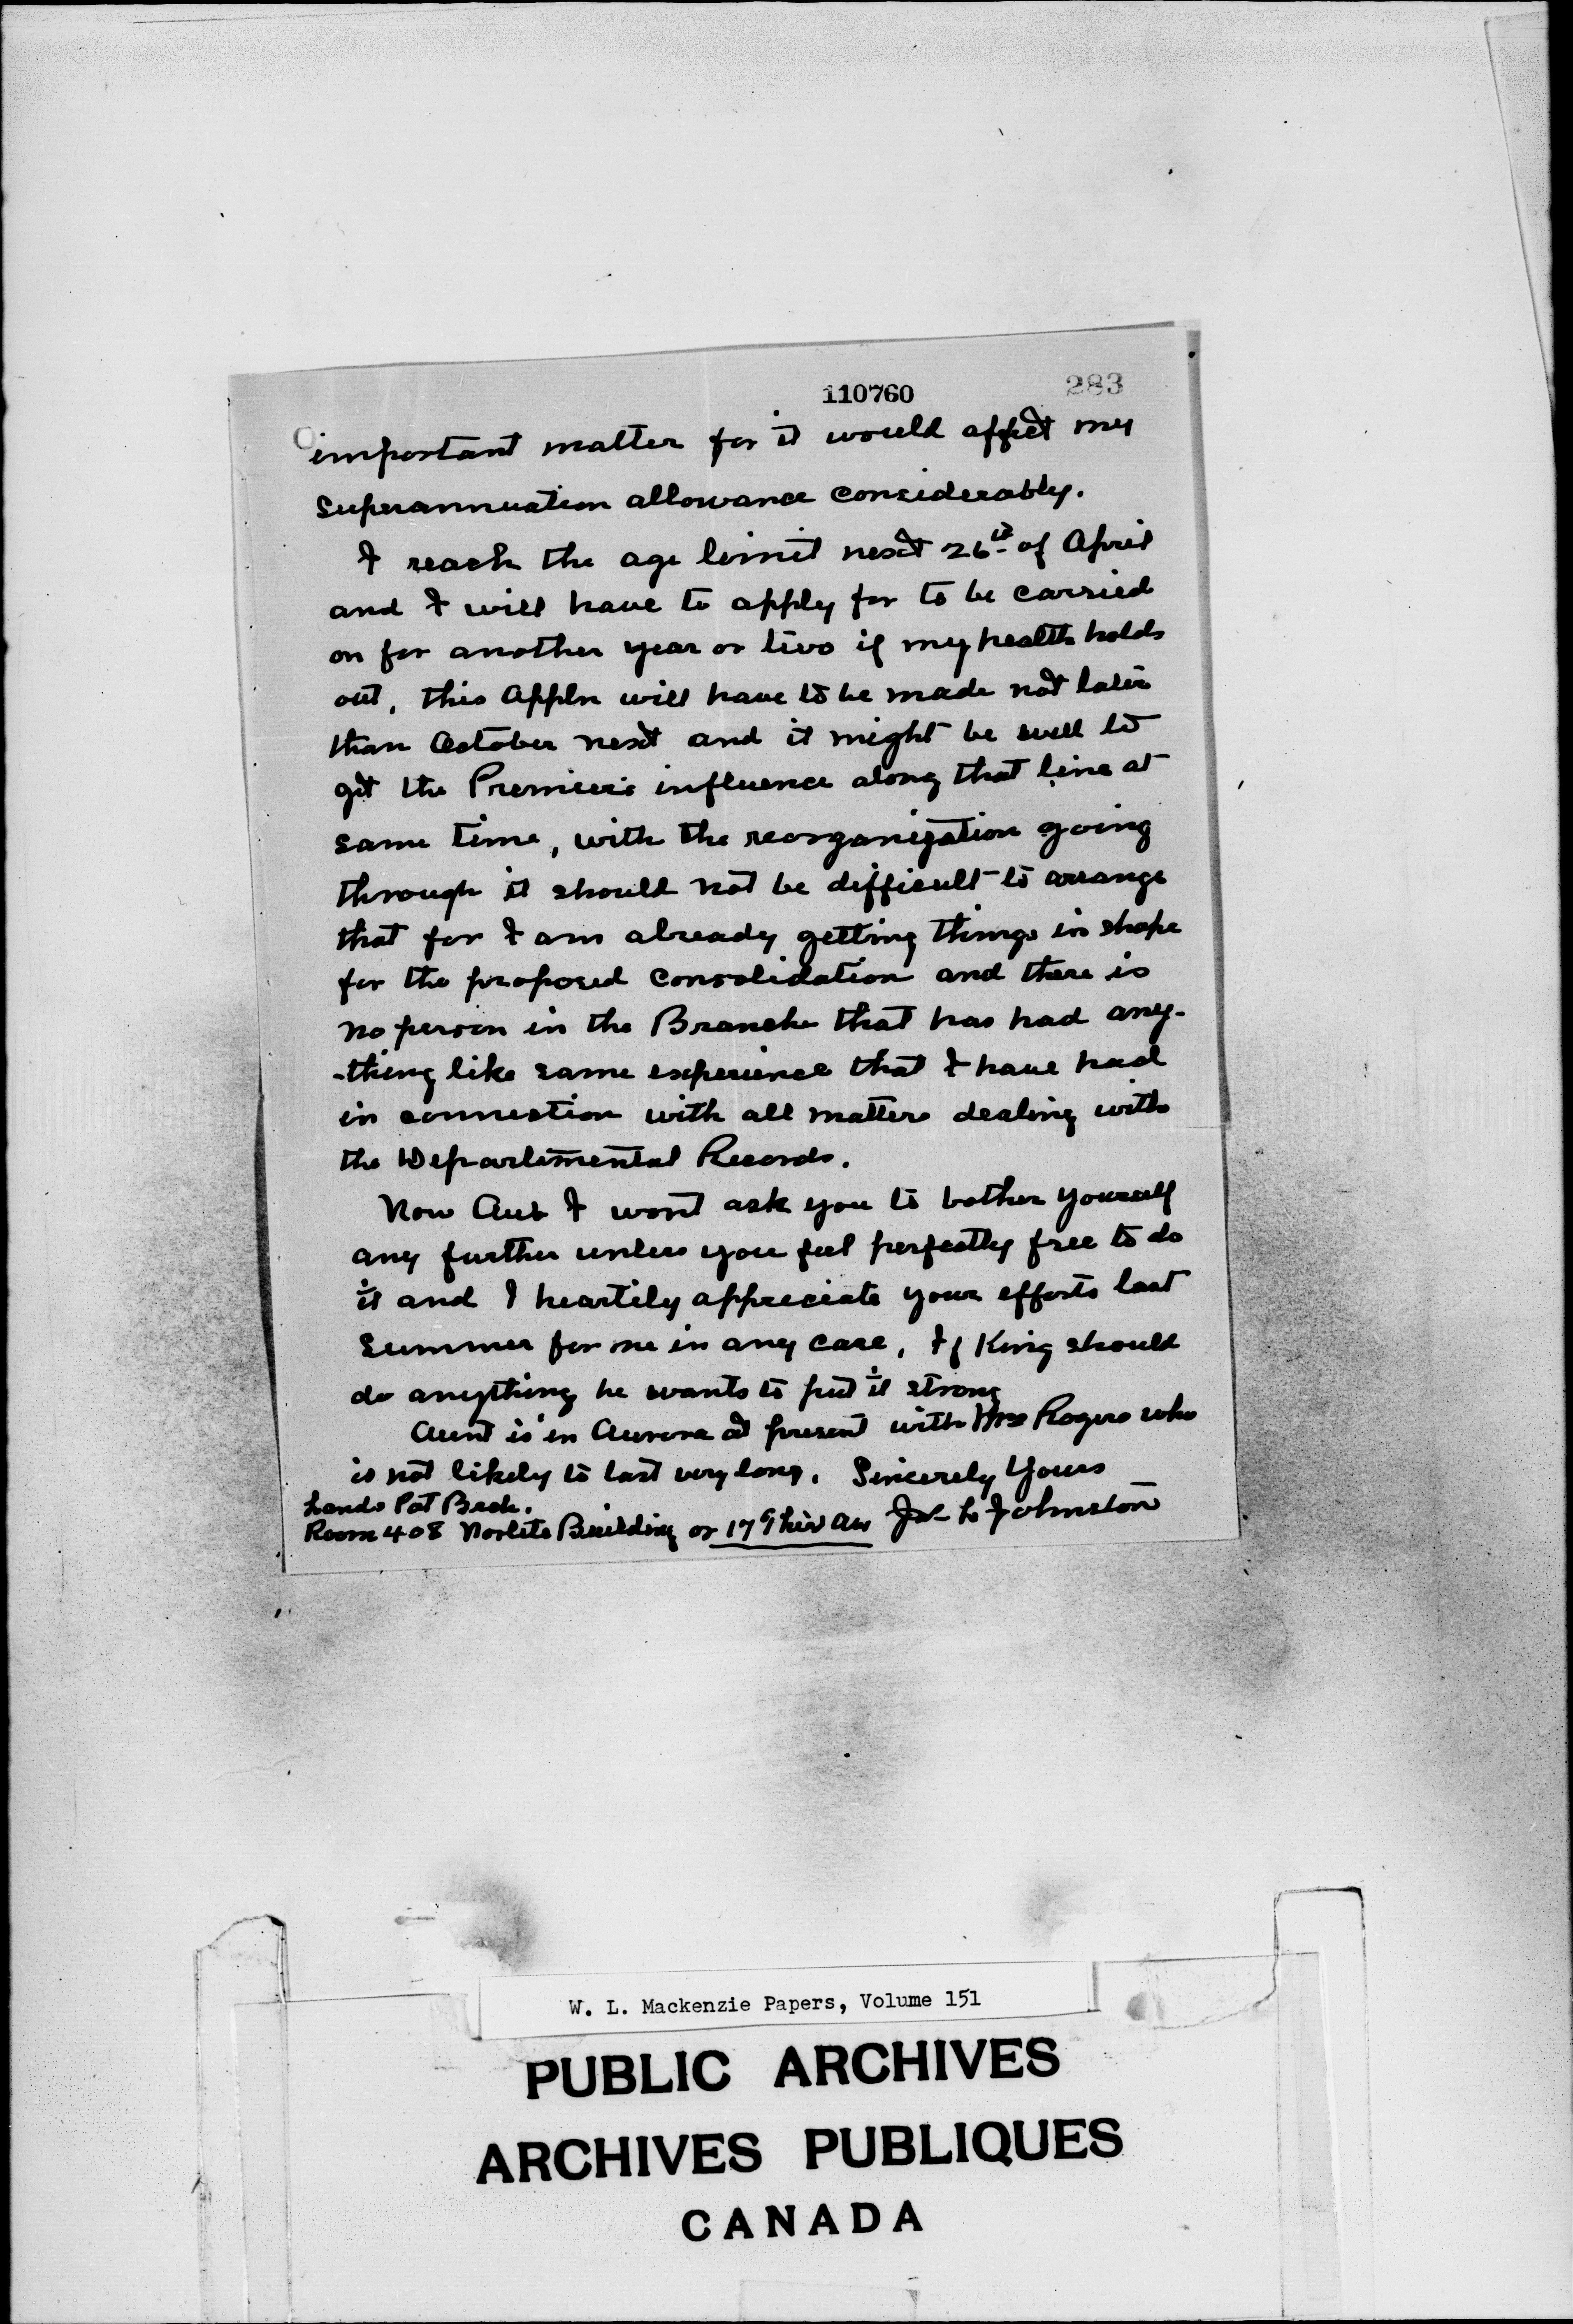 110760 283
important matter for it would affect my
superannuation allowance considerably.
I reach the age limit next 26th of April
and I will have to apply for to be carried
on for another year or two if my health holds
out, this Appln will have to be made not later
than October next and it might be well to
get the Premier's influence along that line at
same time, with the reorganization going
through it should not be difficult to arrange
that for I am already getting things in shape
for the proposed consolidation and there is
no person in the Branch that has had any-
-thing like same experience that I have had
in connection with all matters dealing with
the Departmental Records.
Now Aub I wont ask you to bother yourself
any further unless you feel perfectly free to do
it and I heartily appreciate your efforts last
summer for me in any case, If King should
do anything he wants to put it strong
Aunt is in Aurora at present with Mrs Rogers who
is not likely to last very long. Sincerely Yours
Lands Pat Brch.
Room 408 Norlite Building or 17 Ave Johnston
W. L. Mackenzie Papers, Volume 151
PUBLIC ARCHIVES
ARCHIVES PUBLIQUES
CANADA